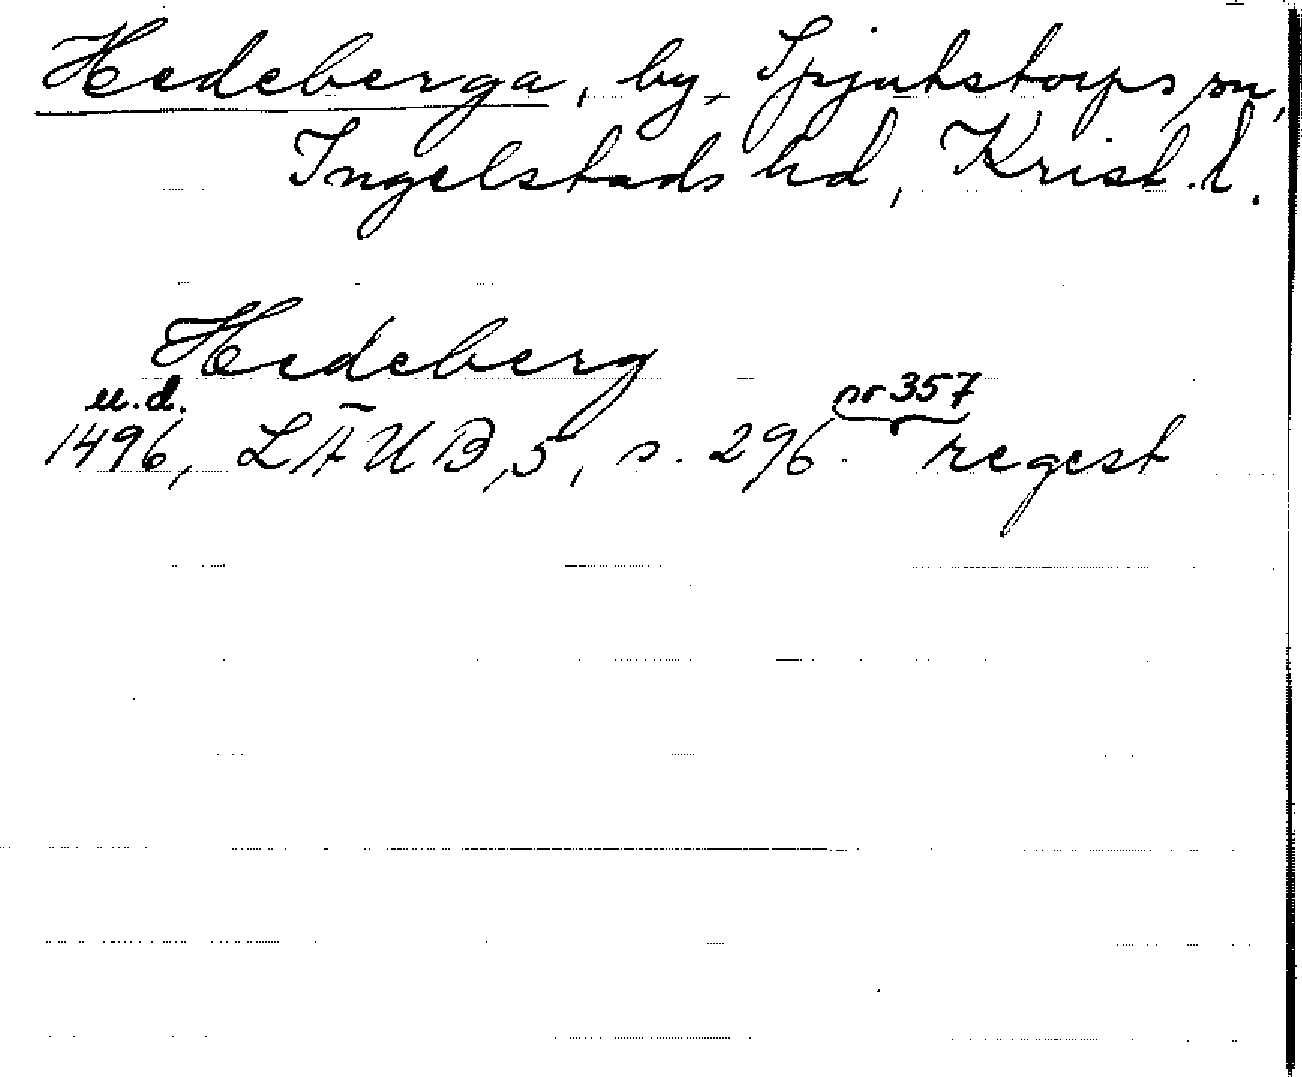 Hedeberga, by, Spjutstorps sn,
Ingelstads hd, Krist. l.
Hedeberg
u.d. nr 357
1496, LÄUB, 5, s. 296. regest